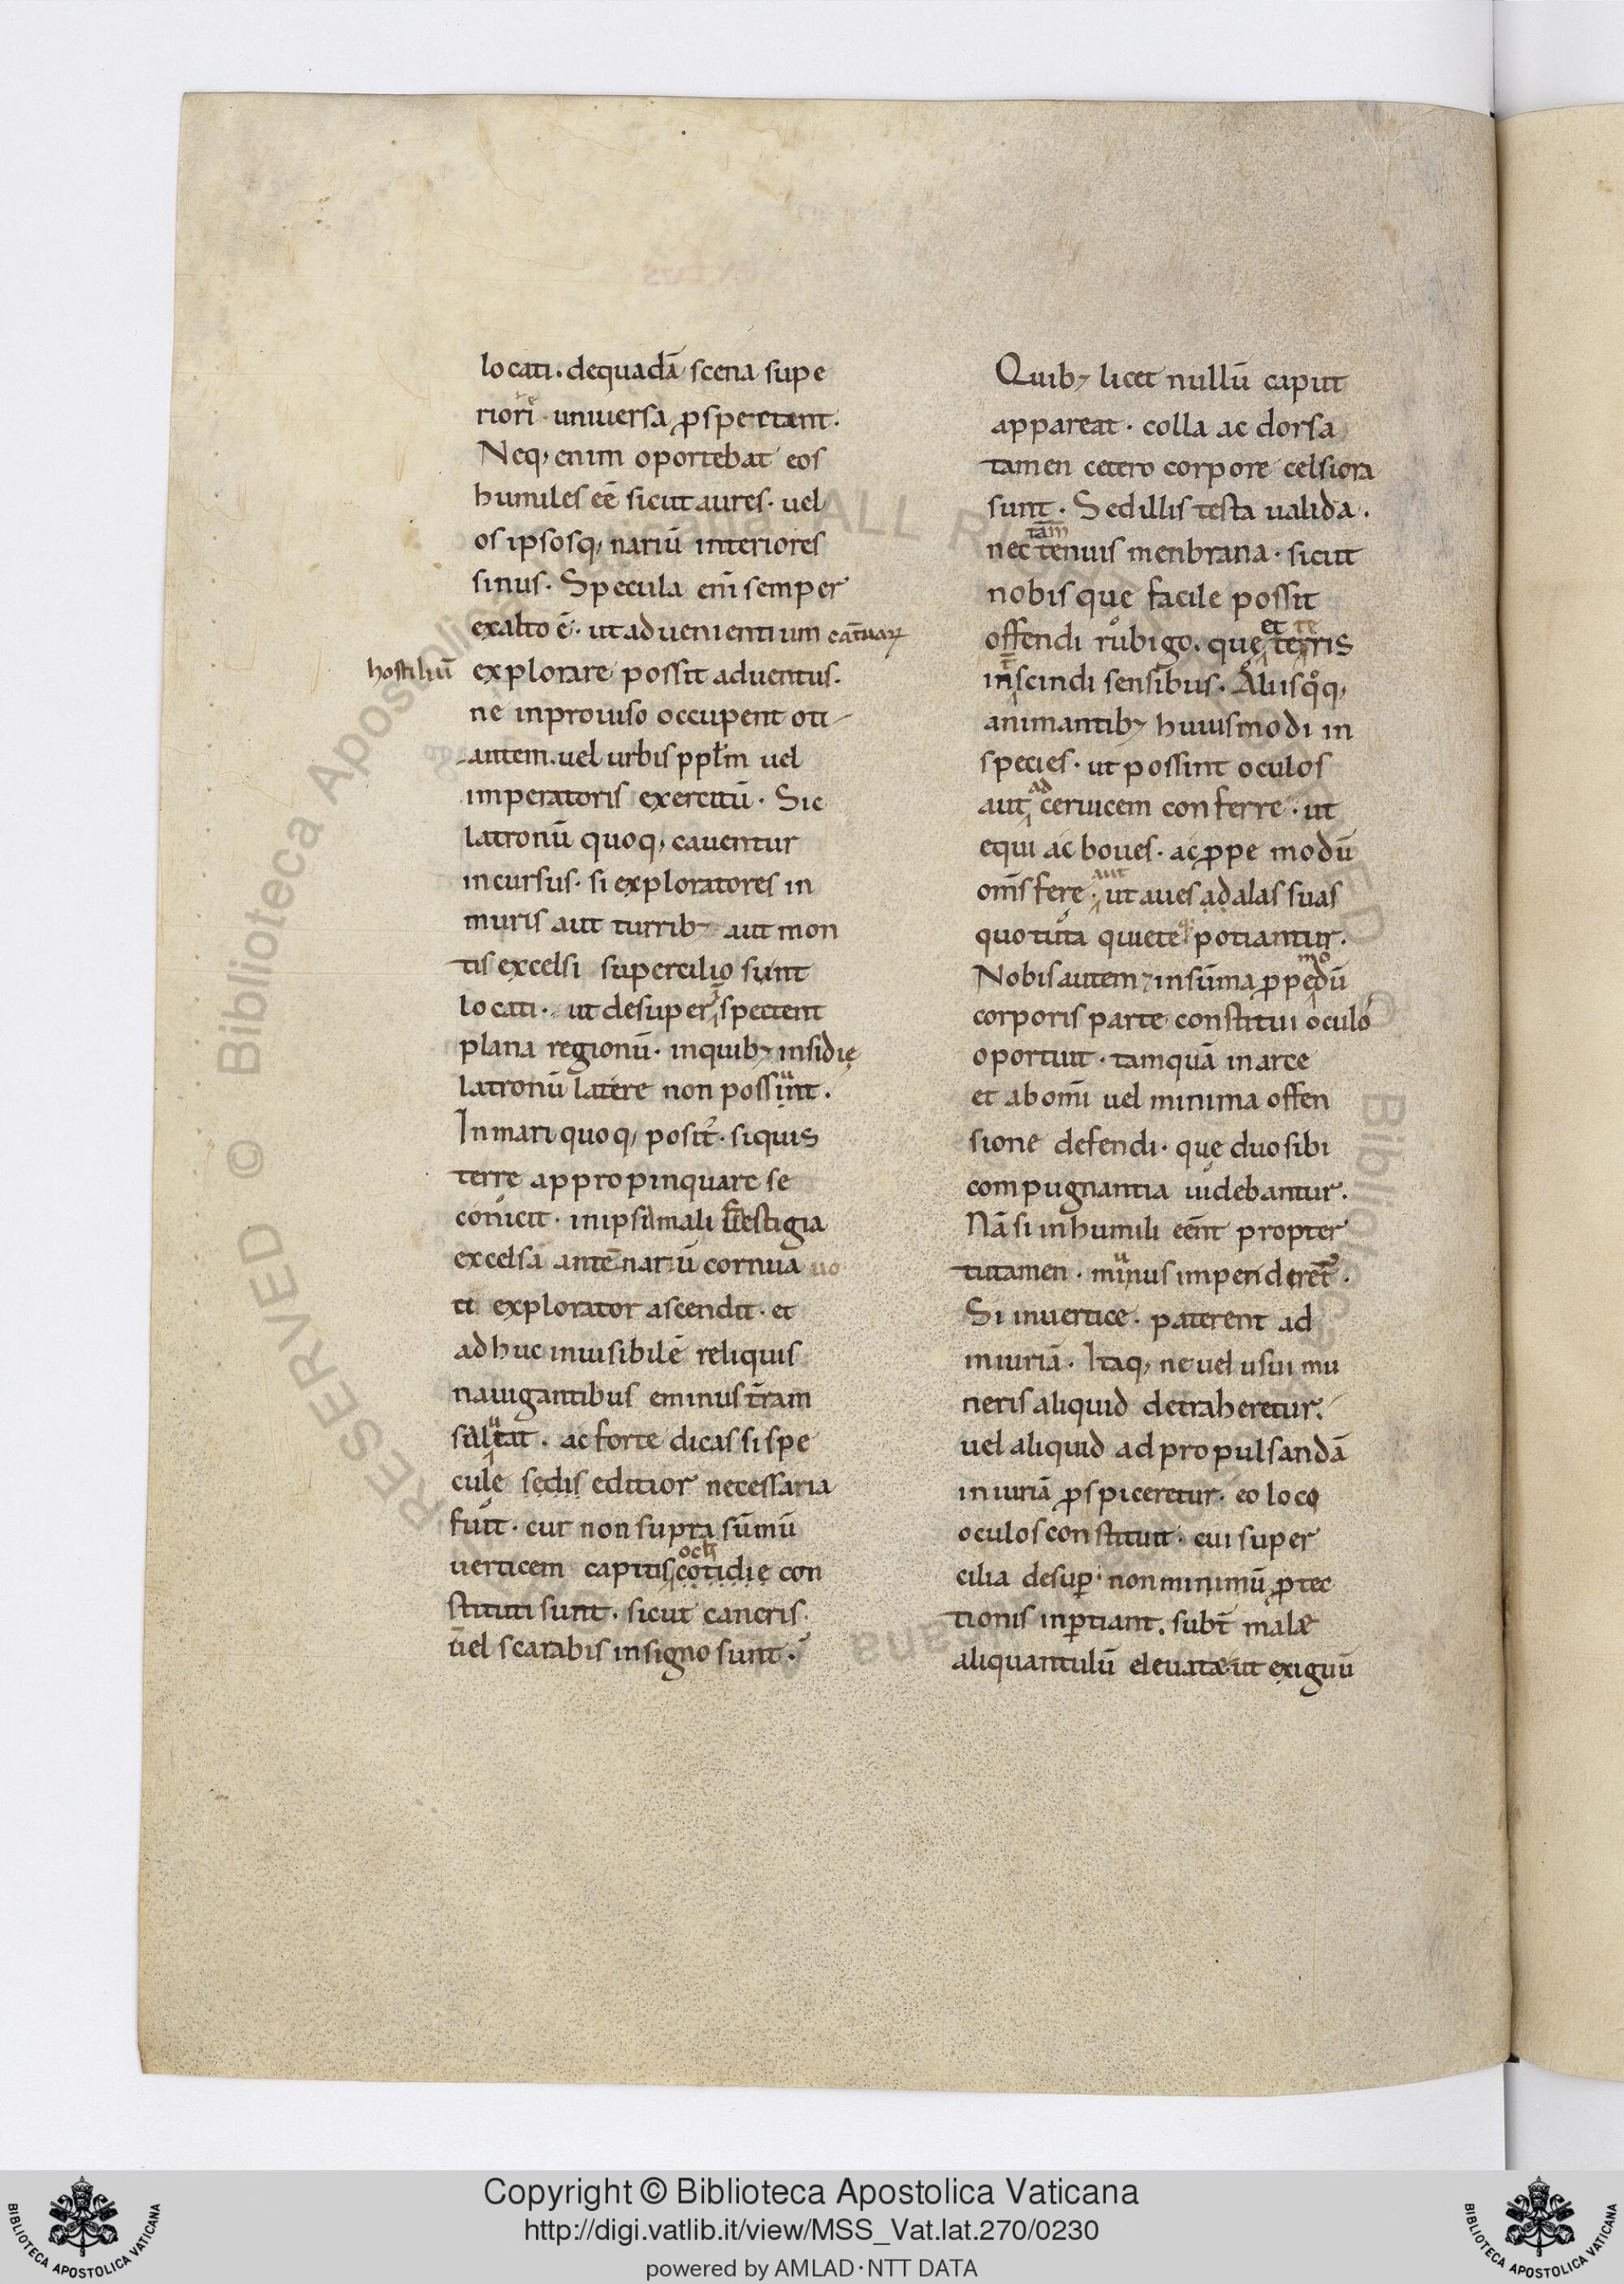 locati. dequadā scena supe
riori · uniuersa ꝓspectant.
Neq; enim oportebat eos
humiles eē sicut aures · uel
os ipsosq; nariū interiores
sinus · Specula eni̅ semper
exalto ē · ut aduenientium catuaꝝ
hostiliū explorare possit aduentus.
ne inprouiso occupent oti
antem. uel urbis ppl̅m uel
imperatoris exercitū · Sic
latronū quoq; cauentur
incursus · si exploratores in
muris aut turrib; aut mon
tis excelsi supercilio sunt
locati · ut desuper spectent
plana regionū · inquib; insidię
latronū latere non possunt.
In mari quoq; posit᷒ · siquis
terrę appropinquare se
conicit · inipsa mali uestigia
excelsa antēnarū cornua uo
ti explorator ascendit · et
adhuc inuisibilē reliquis
nauigantibus eminus t̅ram
salutat · ac forte dicas si spe
culę sedis editior necessaria
fuit · cur non supra sūmū
uerticem capitis och̅ cotidię con
stituti sunt · sicut cancris
uel scarabis insigno sunt ·
Quib; licet nullū caput
appareat · colla ac dorsa
tamen cetero corpore celsiora
sunt · Sed illis testa ualida ·
nec tam̅ tenuis menbrana · sicut
nobis que facile possit
offendi rubigo. quę et te terris
inscindi sensibus · Aliisq̊q;
animantib; huiusmodi in
species · ut possint oculos
aut ad ceruicem conferre · ut
equi ac boues · ac ꝓpe modū
om̅s fere · aut ut aues ad alas suas
quo tuta quiete potiantur.
Nobis autem insūma ꝓpemodū
corporis parte constitui oculo
oportuit · tamquā in arce
et ab om̅i uel minima offen
sione defendi · quę duo sibi
compugnantia uidebantur.
Nā si in humili eēnt propter
tutamen · munus impenderet᷒ ·
Si inuertice · paterent ad
iniuriā · Itaq; ne uel usui mu
neris aliquid detraheretur.
uel aliquid ad propulsandā
iniuriā ꝓspiceretur · eo loco
oculos constituit · cui super
cilia desuꝑ · non minimū ꝓtec
tionis inꝑtiant. subt̅ malæ
aliquantulū eleuatæ · ut exiguū
Copyright © Biblioteca Apostolica Vaticana
http://digi.vatlib.it/view/MSS_Vat.lat.270/0230
powered by AMLAD · NTT DATA
BIBLIOTECA APOSTOLICA VATICANA
BIBLIOTECA APOSTOLICA VATICANA